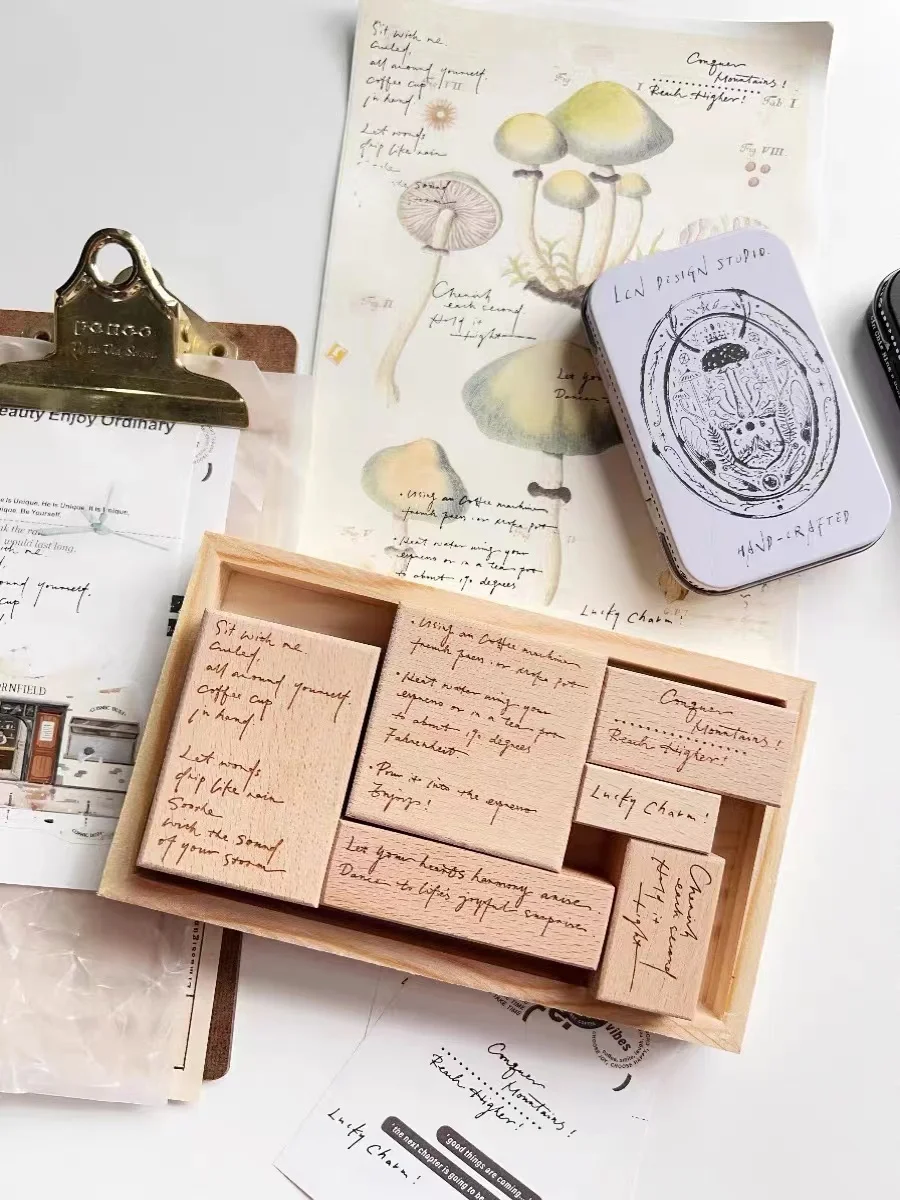 Sit with me
Curled,
all around yourself.
Coffee cup VII
in hand!
Let words
drip like rain
the sound
Conquer
Mountains!
Reach Higher!
Fig
I
Fab. I
Fig VIII.
Cherish
each second
Hold it
tight
Fig II
Let you
Dance
• Using an Coffee machine
french press, or moka pot
• Heat water using your
espresso or in a tea pot
to about 190 degrees
Fig V
Lucky Charm!
LCN DESIGN STUDIO.
HAND-CRAFTED
eauty Enjoy Ordinary
e is Unique. He is Unique. It is Unique.
Be Yourself.
nk the ra
would last long.
with me
ound yourself.
cup
RNFIELD
Sit with me
Curled,
all around yourself.
Coffee cup
in hand!
Let words
drip like rain
Soothe
with the sound
of your storm
• Using an Coffee machine
french press, or moka pot
• Heat water using your
espresso or in a tea pot
to about 190 degrees
Fahrenheit
• Pour it into the espresso
Enjoys!
Conquer
Mountains!
Reach Higher!
Lucky Charm!
Let your hearts harmony arise.
Dance to life's joyful surprises
Cherish
each second
Hold it
tight
TAKE TIME
vibes
CHOOSE JOY, CHOOSE HAPPY,
Conquer
Mountains!
Reach Higher!
Lucky Charm!
good things are coming...
the next chapter is going to be